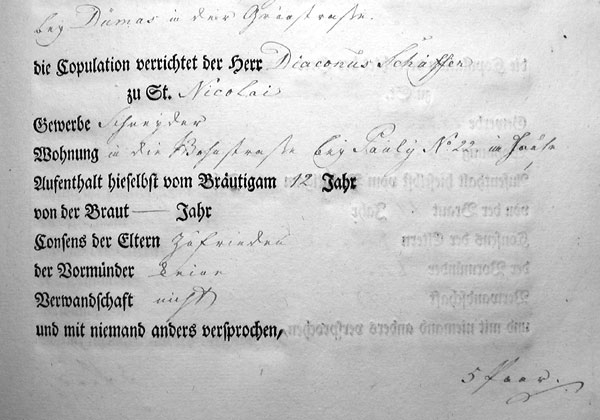 bey Dümas in der Grünstraße.
die Copulation verrichtet der Herr Diaconus Schäffer
zu St. Nicolai
Gewerbe Schneyder
Wohnung in die Roßstraße bey Pauly No 22 im Hause
Aufenthalt hieselbst vom Bräutigam 12 Jahr
von der Braut — Jahr
Consens der Eltern Zufrieden
der Vormünder keine
Verwandschaft nicht
und mit niemand anders versprochen,
5 Paar.